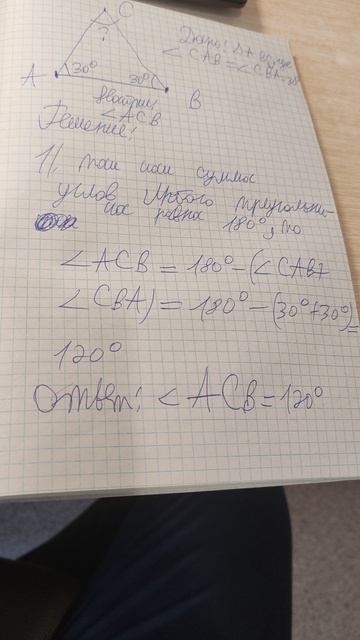 C
?
A 30° 30° B
Дано: △ ABC,
∠ CAB = ∠ CBA =
Найти:
∠ ACB
Решение:
1)
сумма
углов любого треугольни-
равна 180°, то
∠ ACB = 180° - (∠ CAB +
∠ CBA) = 180° - (30° + 30°) =
120°
Ответ: ∠ ACB = 120°